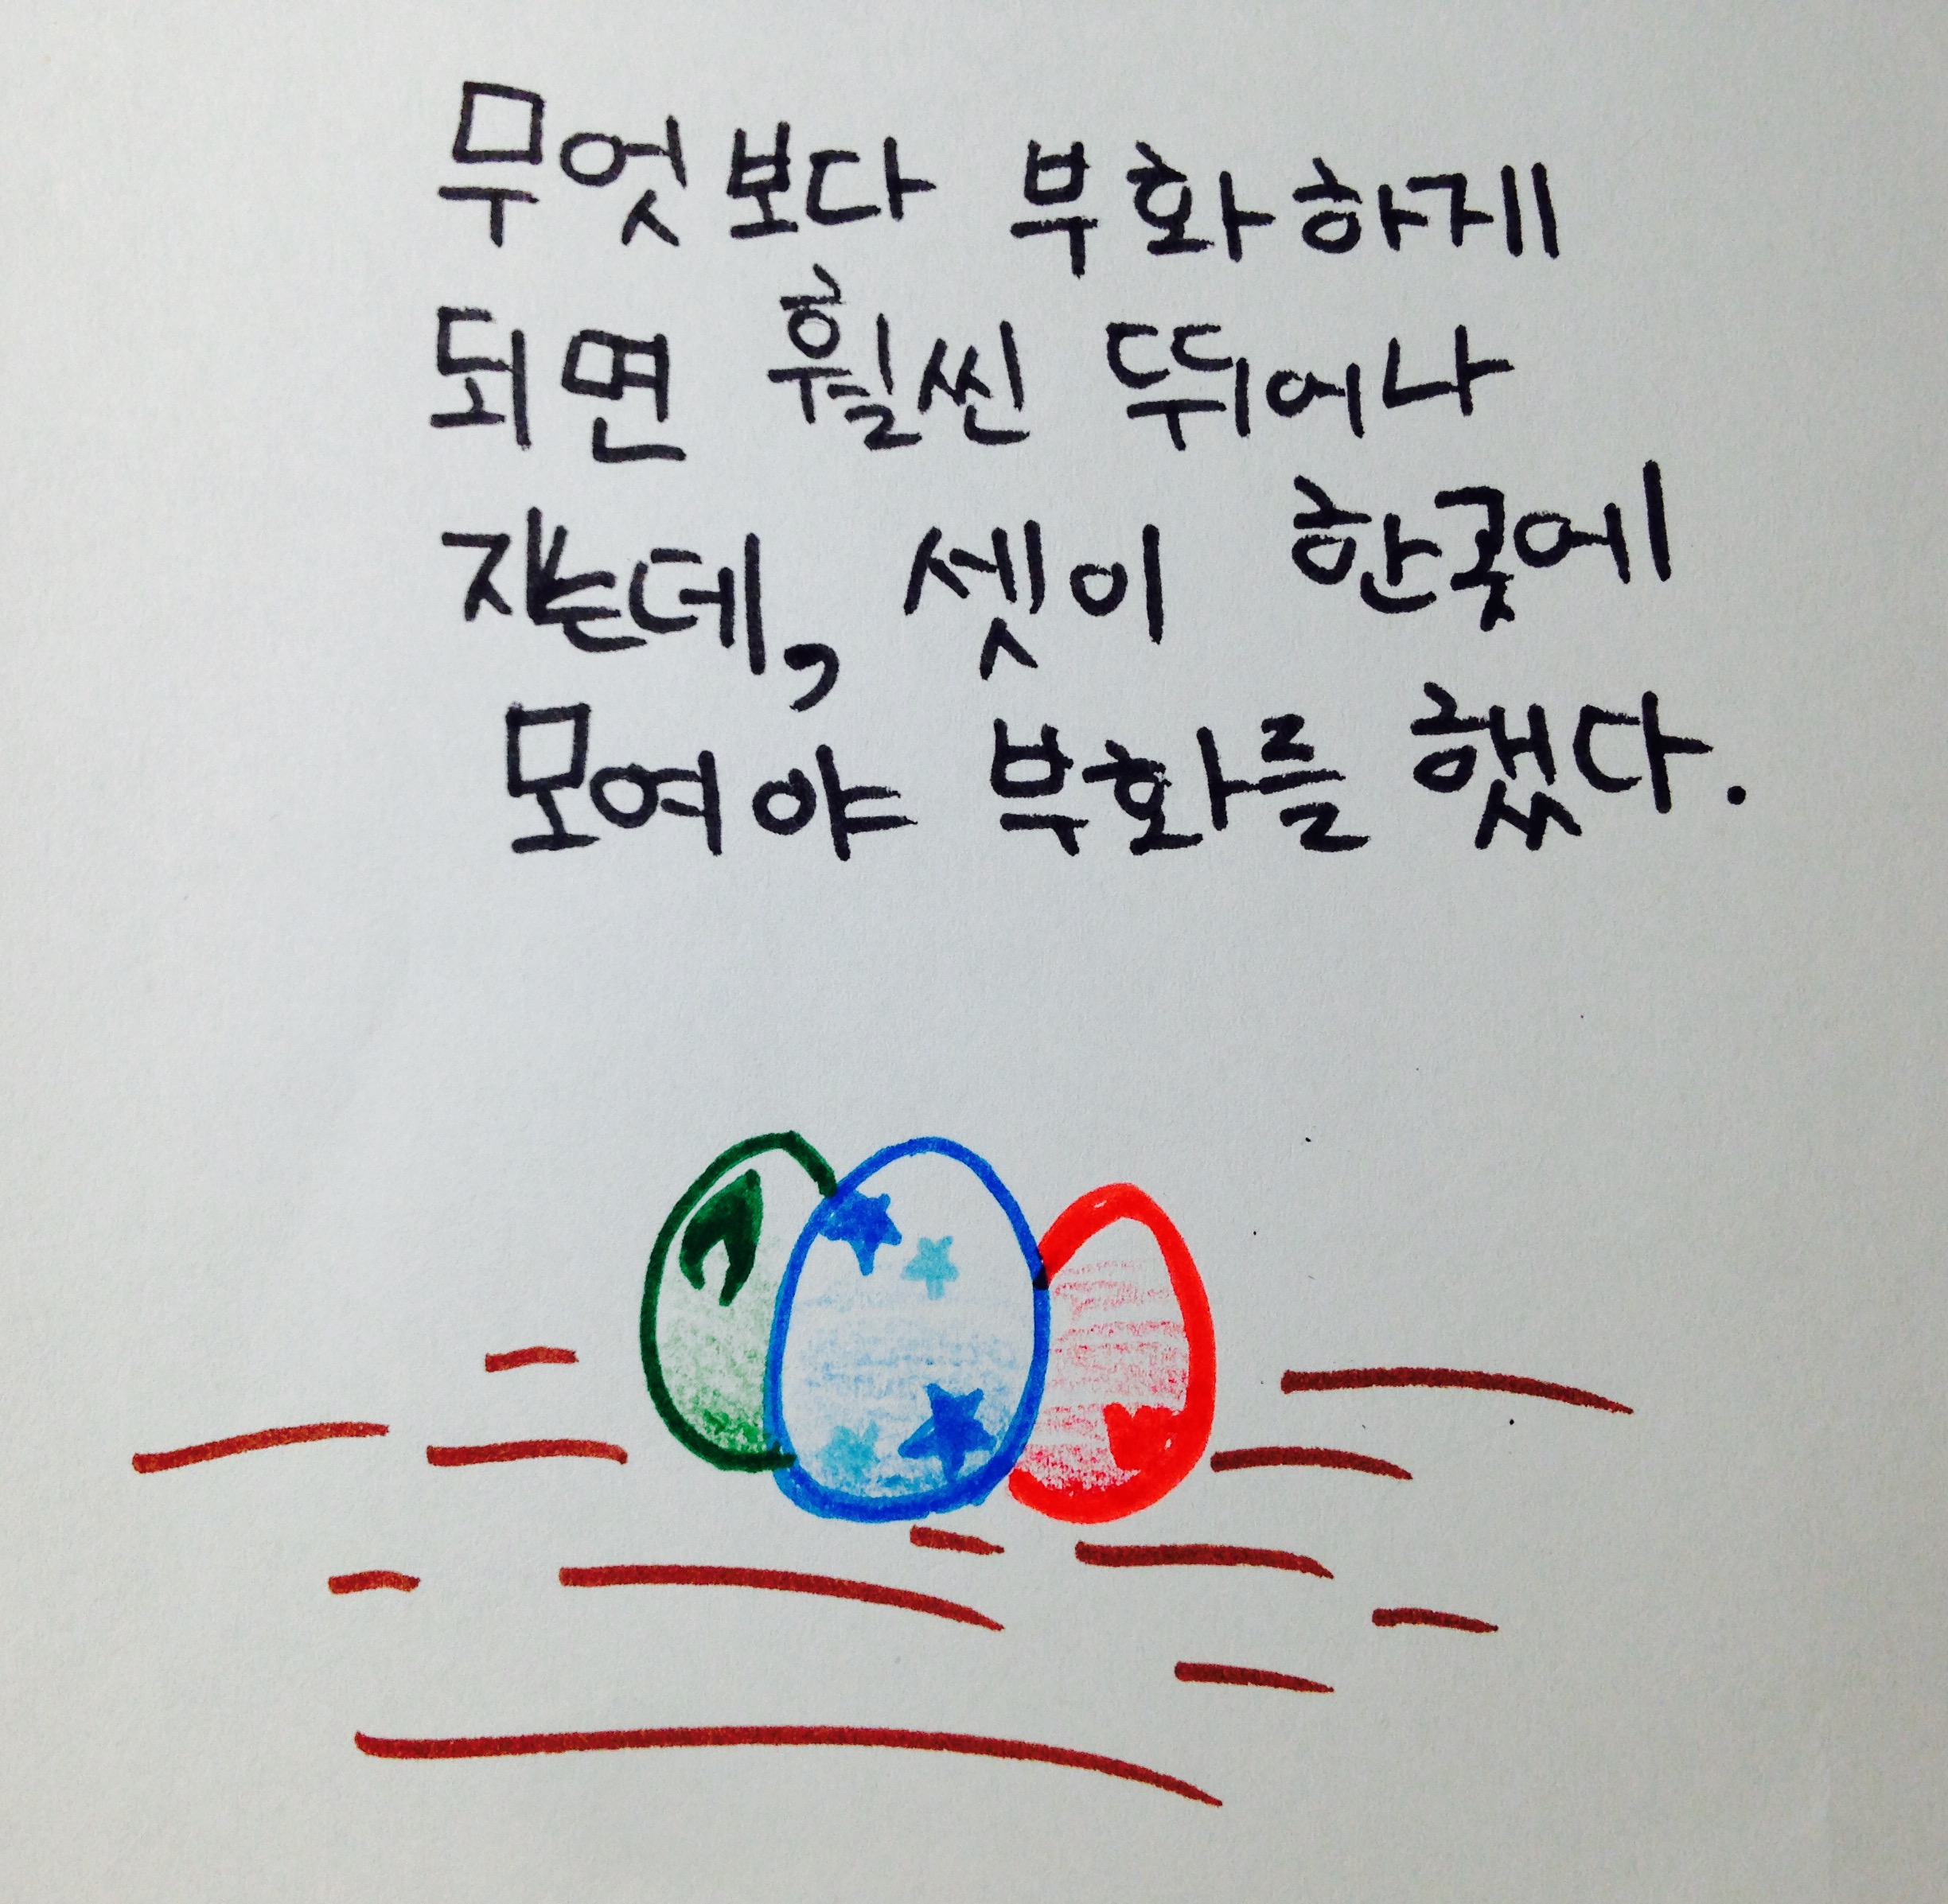 무엇보다 부화하게
되면 훨씬 뛰어나
지는데, 셋이 한곳에
모여야 부화를 했다.